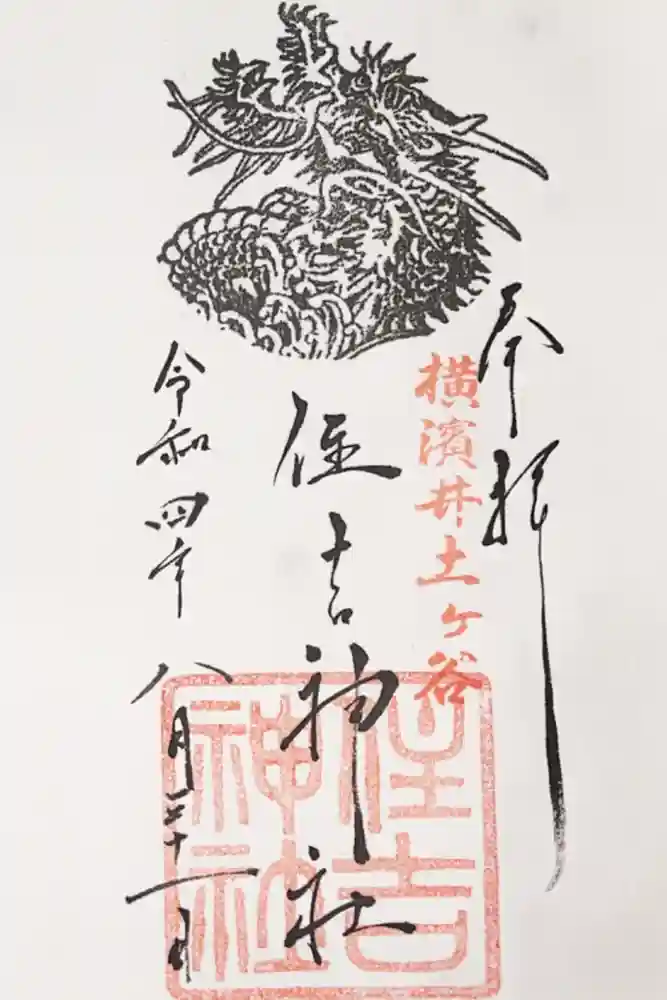 奉拝
横濱井土ヶ谷
住吉神社
住吉
神社
令和四年八月三十一日